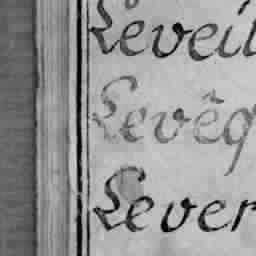 Leveil
Levêq
Lever